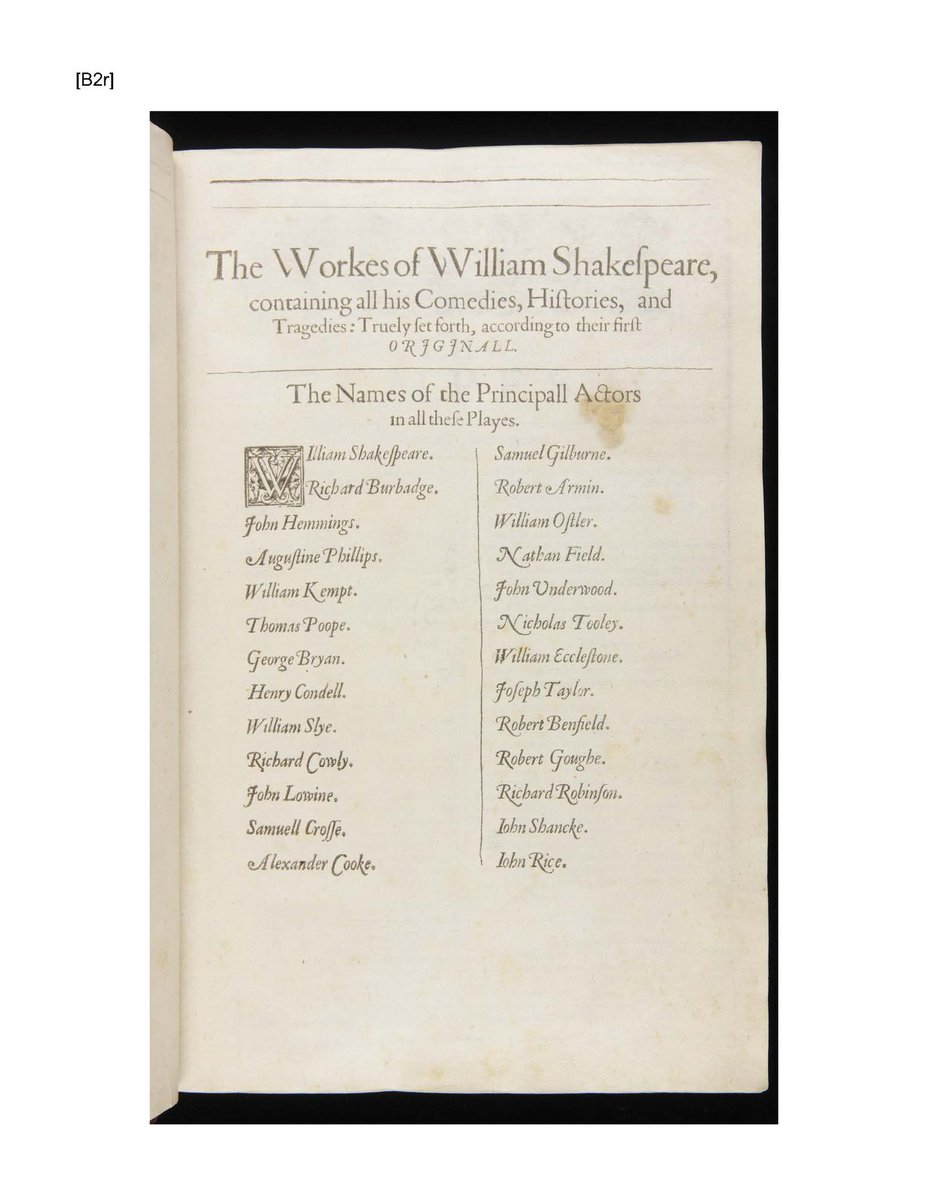 [B2r]
The Workes of William Shakeſpeare,
containing all his Comedies, Hiſtories, and
Tragedies: Truely ſet forth, according to their firſt
ORJGJNALL.
The Names of the Principall Actors
in all theſe Playes.
William Shakeſpeare.
Richard Burbadge.
John Hemmings.
Auguſtine Phillips.
William Kempt.
Thomas Poope.
George Bryan.
Henry Condell.
William Slye.
Richard Cowly.
John Lowine.
Samuell Croſſe.
Alexander Cooke.
Samuel Gilburne.
Robert Armin.
William Oſtler.
Nathan Field.
John Underwood.
Nicholas Tooley.
William Eccleſtone.
Joſeph Taylor.
Robert Benfield.
Robert Goughe.
Richard Robinſon.
Iohn Shancke.
Iohn Rice.